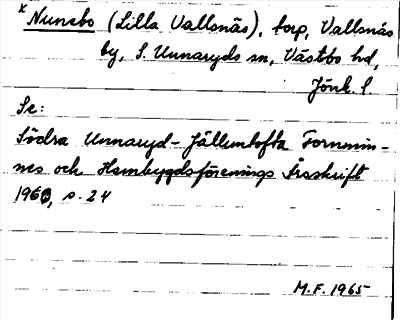 x Nunebo (Lilla Vallsnäs), torp, Vallsnäs
by, S. Unnaryds sn, Västbo hd,
Jönk. l.
Se:
Södra Unnaryd-Jälluntofta Fornmin-
nes och Hembygdsförenings Årsskrift
1960, s. 24
M.F. 1965